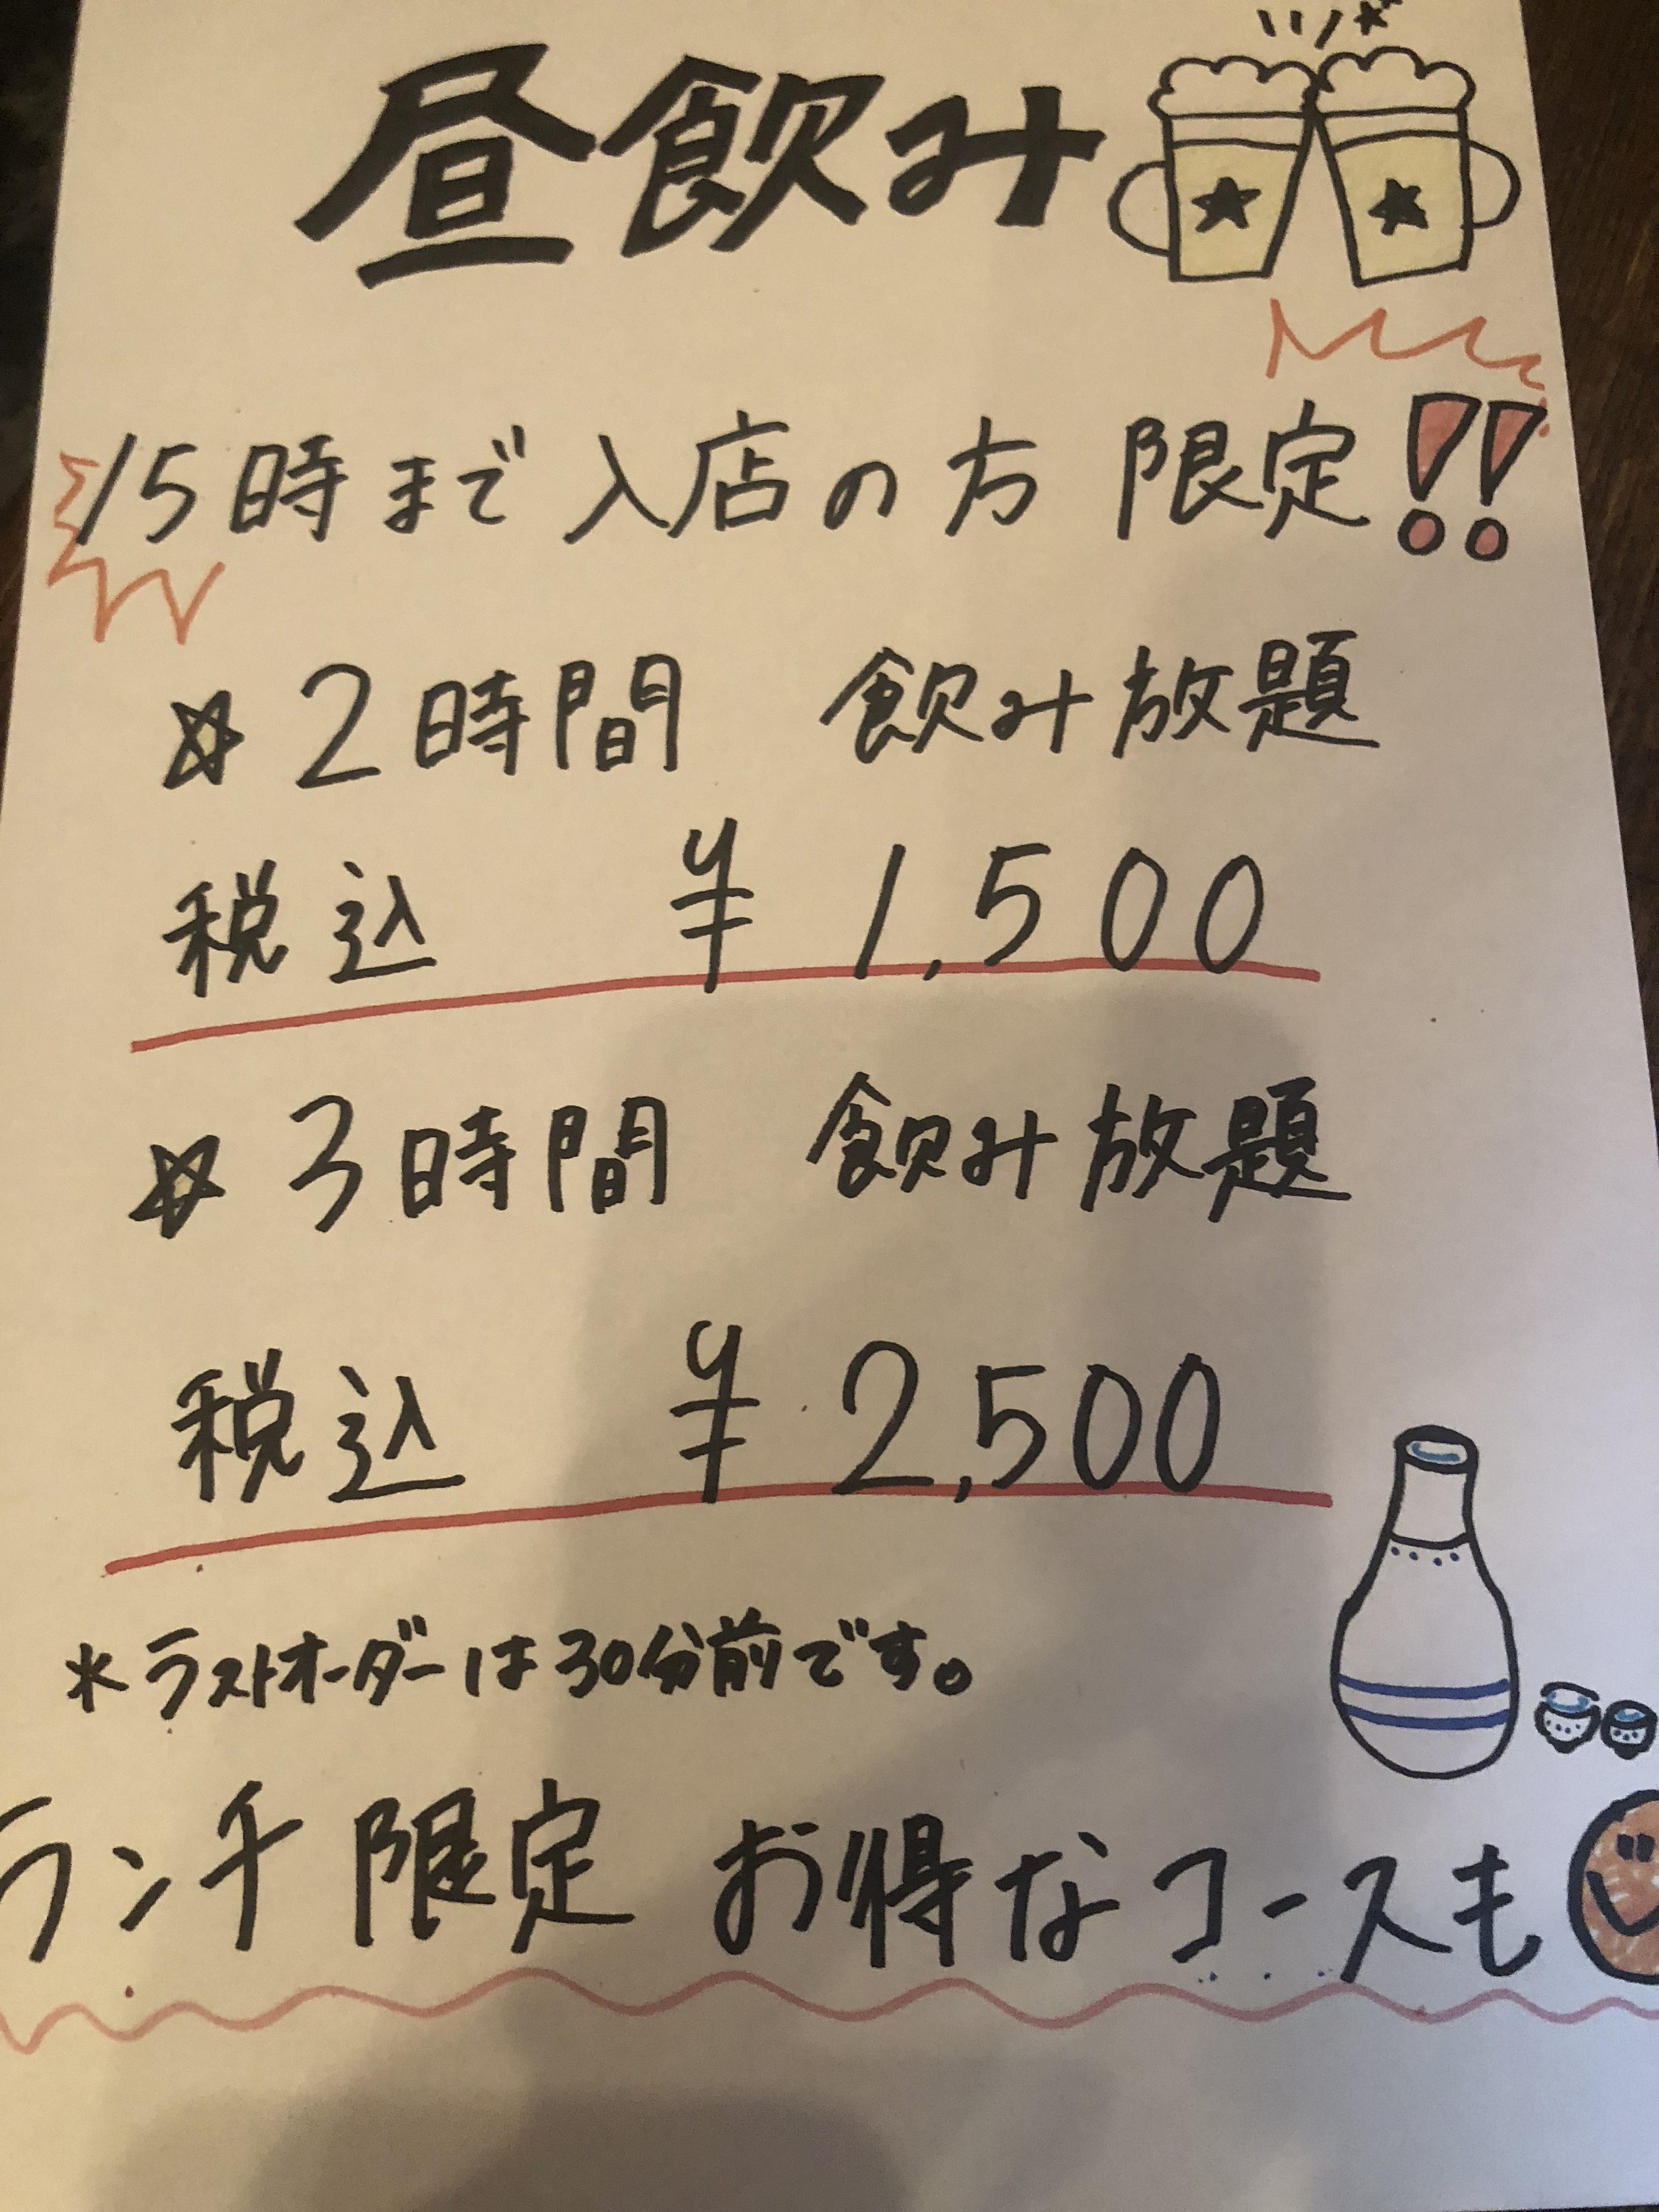 昼飲み
15時まで入店の方 限定!!
☆2時間 飲み放題
税込 ¥1,500
☆3時間 飲み放題
税込 ¥2,500
*ラストオーダーは30分前です。
ランチ限定 お得なコースも